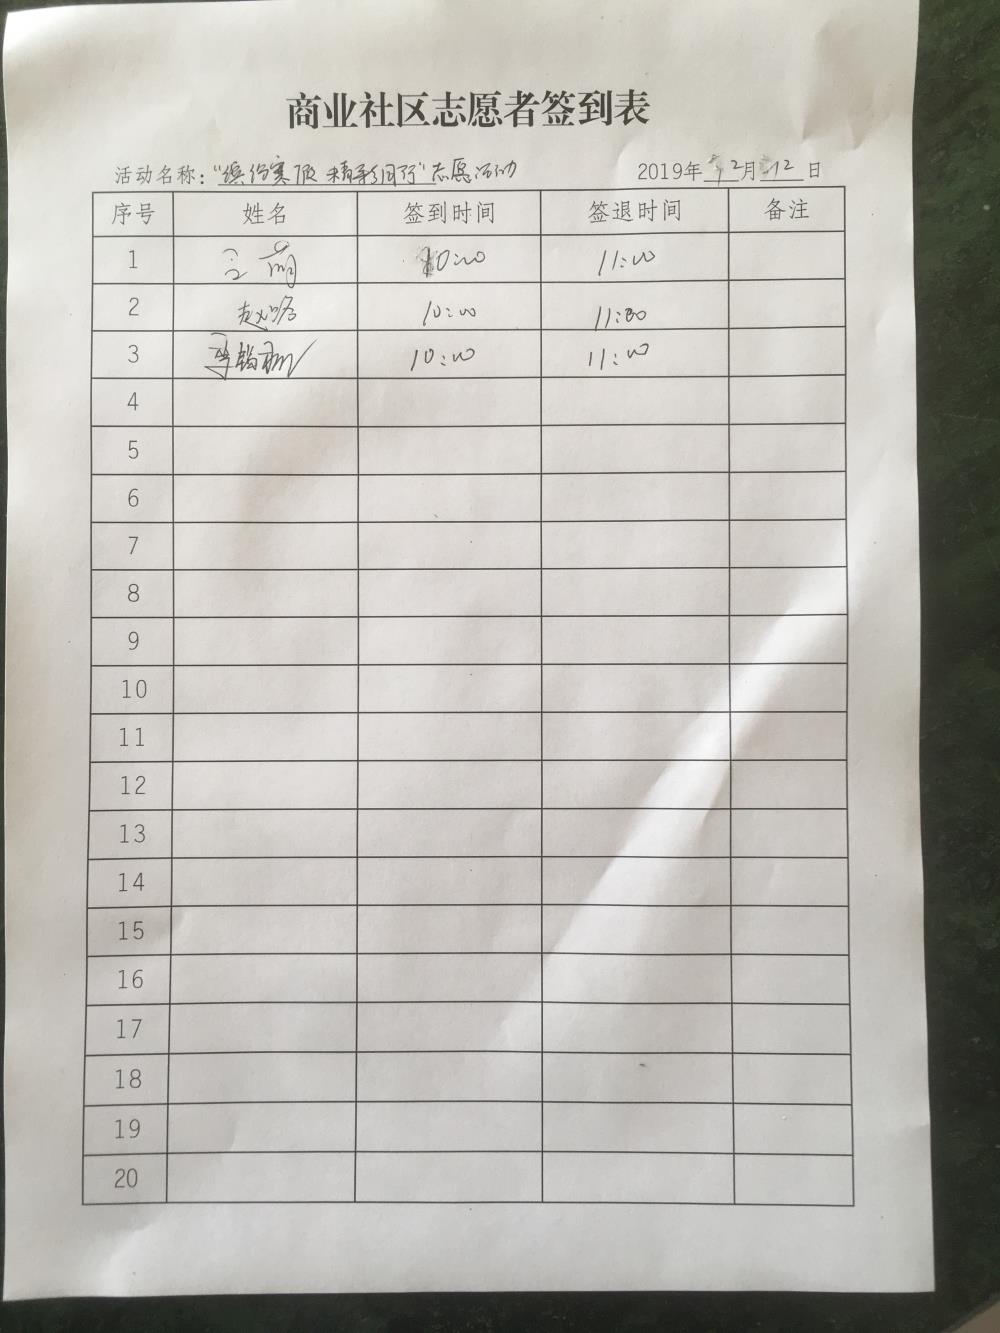 商业社区志愿者签到表
活动名称："缤纷寒假 精彩同行"志愿活动 2019年 2月 12日
序号 姓名 签到时间 签退时间 备注
1 10:00 11:00
2 赵 10:00 11:00
3 10:00 11:00
4
5
6
7
8
9
10
11
12
13
14
15
16
17
18
19
20